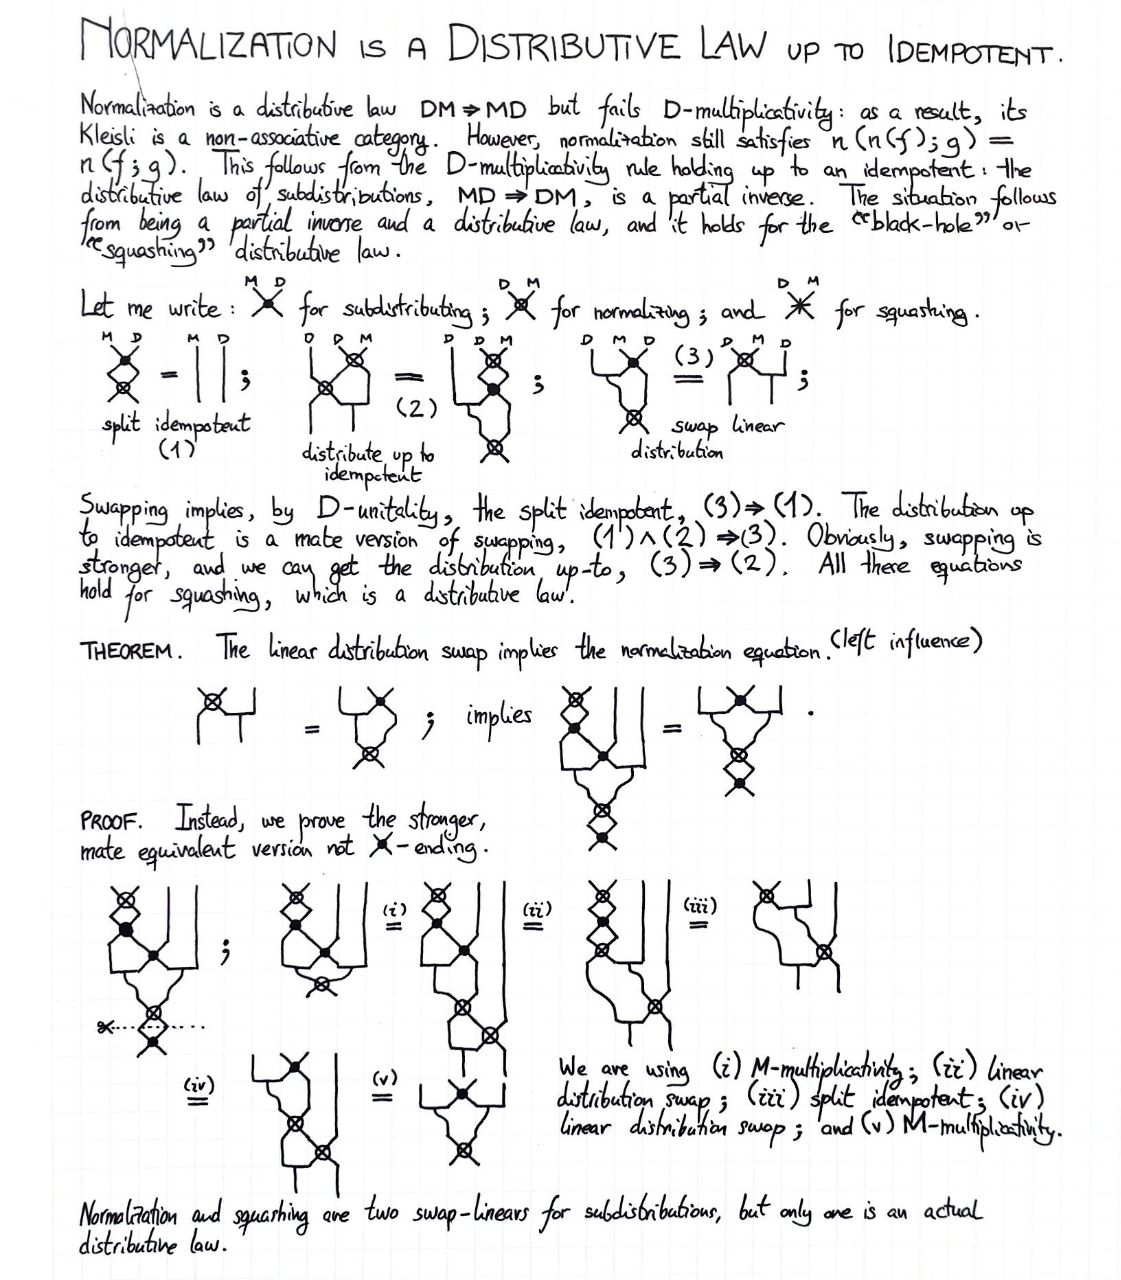 NORMALIZATION IS A DISTRIBUTIVE LAW UP TO IDEMPOTENT.
Normalization is a distributive law DM⇒MD but fails D-multiplicativity: as a result, its
Kleisli is a non-associative category. However, normalization still satisfies n(n(f);g) =
n(f;g). This follows from the D-multiplicativity rule holding up to an idempotent: the
distributive law of subdistributions, MD⇒DM, is a partial inverse. The situation follows
from being a partial inverse and a distributive law, and it holds for the "black-hole" or
"squashing" distributive law.
M D D M D M
Let me write: for subdistributing; for normalizing; and for squashing.
M D M D D D M D D M D M D D M D
= ; = ; (3) = ;
(2)
split idempotent
(1)
distribute up to
idempotent
swap linear
distribution
Swapping implies, by D-unitality, the split idempotent, (3)⇒(1). The distribution up
to idempotent is a mate version of swapping, (1)∧(2)⇒(3). Obviously, swapping is
stronger, and we can get the distribution up-to, (3)⇒(2). All there equations
hold for squashing, which is a distributive law.
THEOREM. The linear distribution swap implies the normalization equation. (left influence)
= ; implies = .
PROOF. Instead, we prove the stronger,
mate equivalent version not -ending.
; (i) = (ii) = (iii) =
(iv) = (v) =
We are using (i) M-multiplicativity; (ii) linear
distribution swap; (iii) split idempotent; (iv)
linear distribution swap; and (v) M-multiplicativity.
Normalization and squashing are two swap-linears for subdistributions, but only one is an actual
distributive law.